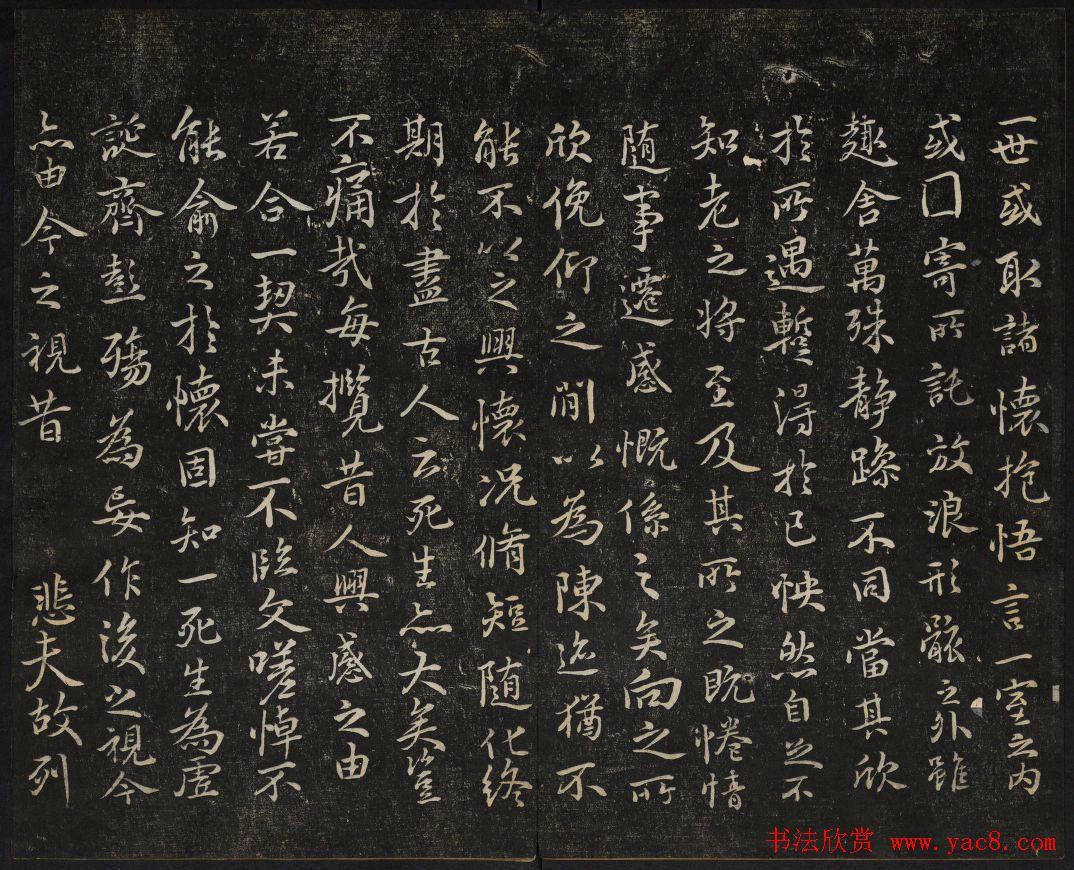 一世或取諸懷抱悟言一室之內
或囗寄所託放浪形骸之外雖
趣舍萬殊静躁不同當其欣
於所遇蹔得於己怏然自足不
知老之將至及其所之既惓情
隨事遷感慨係之矣向之所
欣俛仰之閒以為陳迹猶不
能不以之興懷況脩短隨化終
期於盡古人云死生亦大矣豈
不痛哉每攬昔人興感之由
若合一契未嘗不臨文嗟悼不
能喻之於懷固知一死生為虛
誕齊彭殤為妄作後之視今
亦由今之視昔 悲夫故列
书法欣赏 www.yac8.com